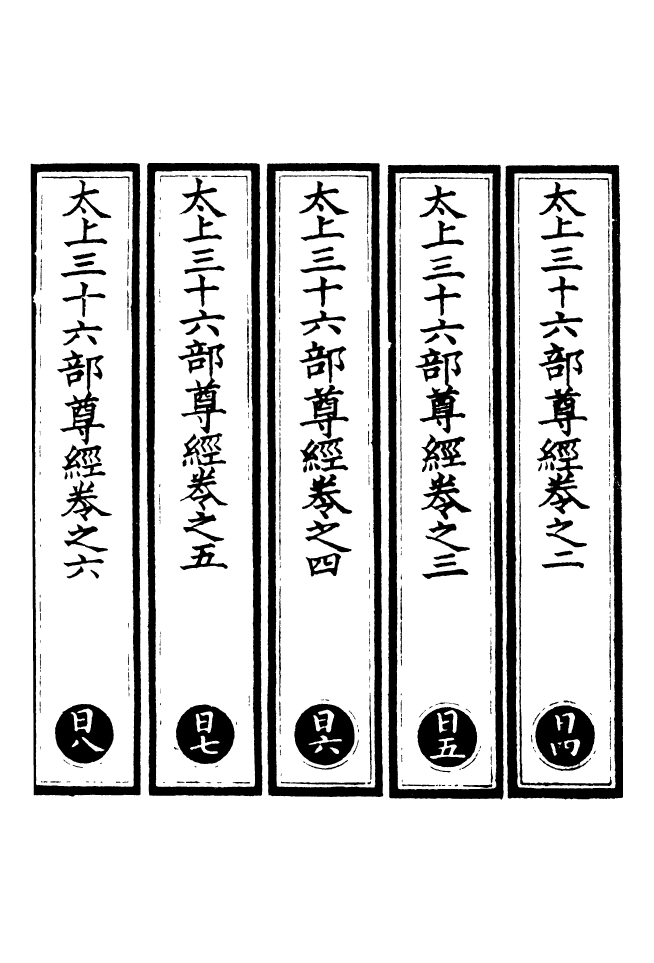 太上三十六部尊經卷之二
日四
太上三十六部尊經卷之三
日五
太上三十六部尊經卷之四
日六
太上三十六部尊經卷之五
日七
太上三十六部尊經卷之六
日八